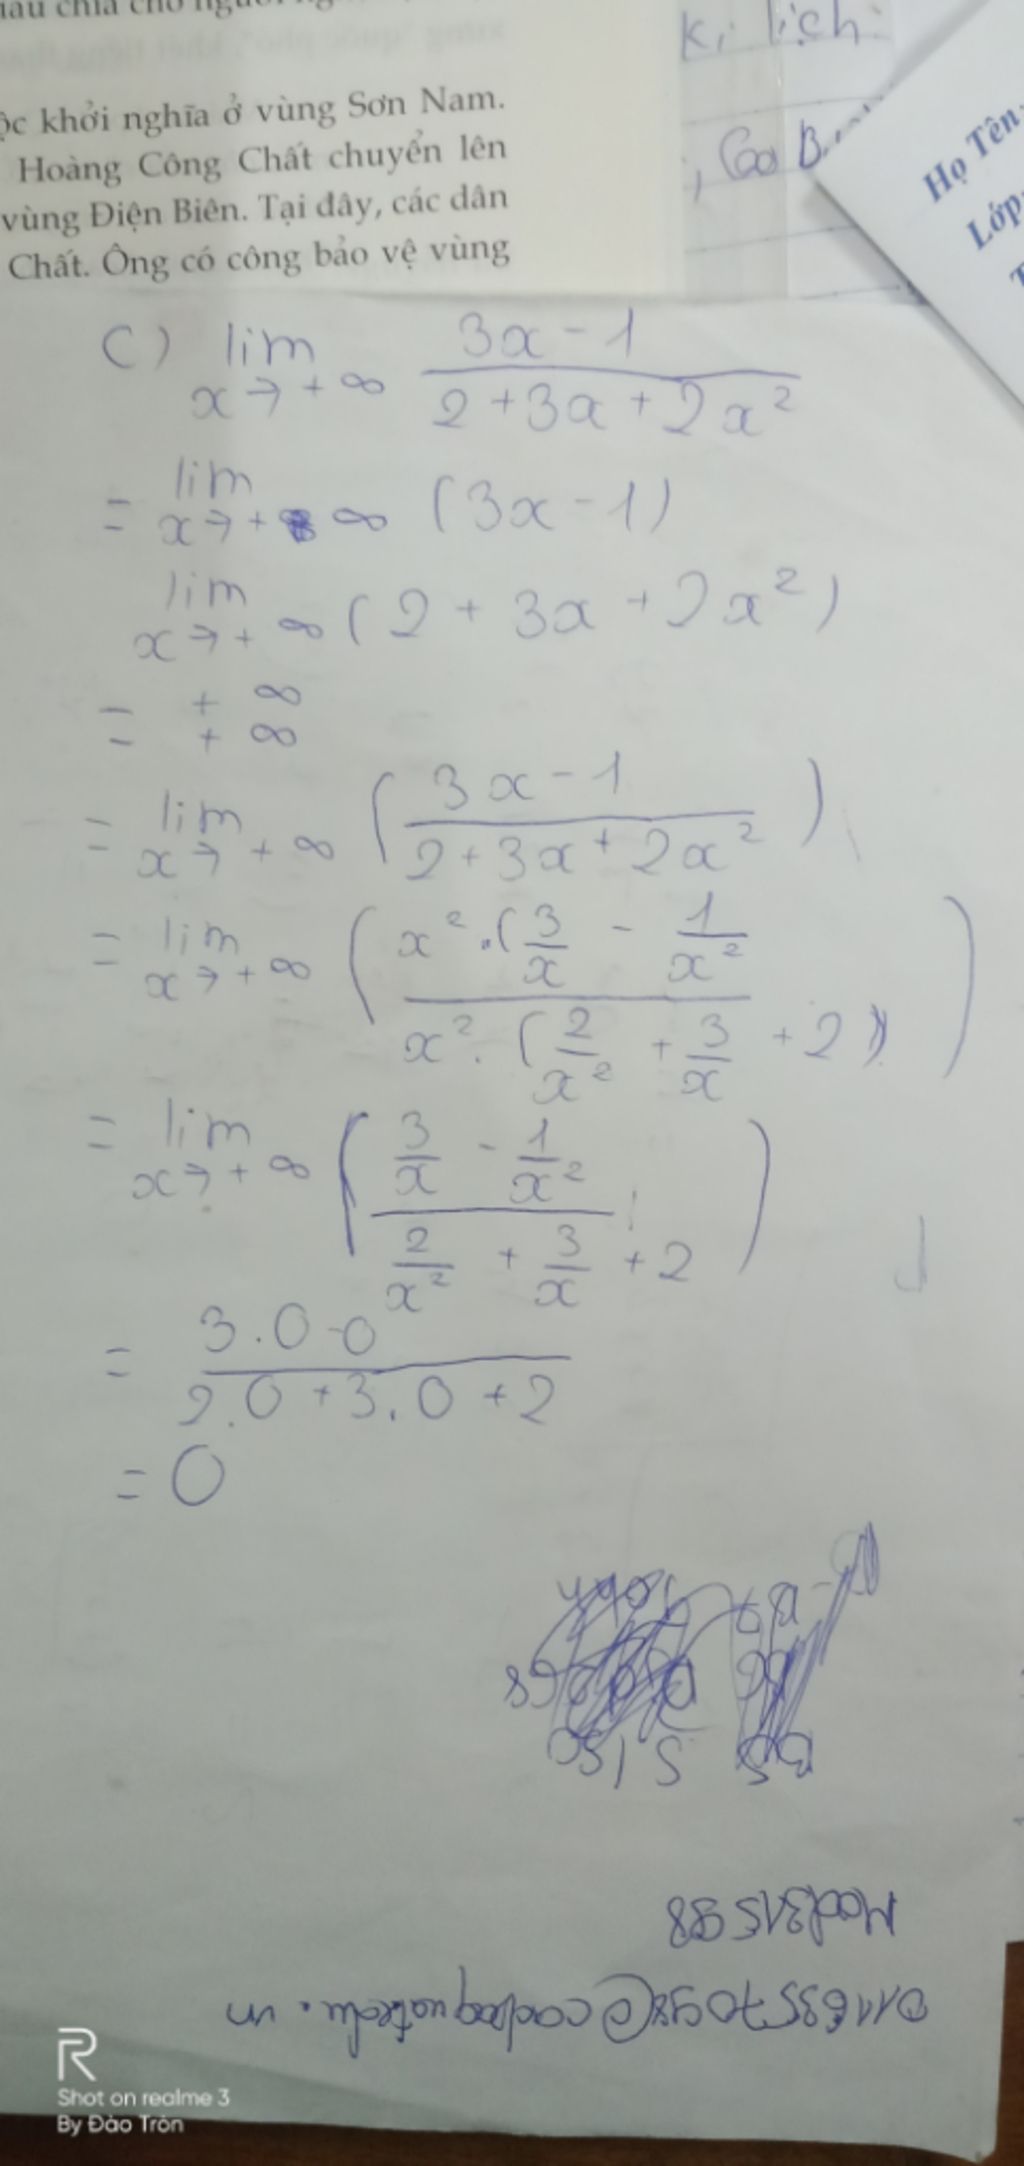 hau chia cho người
ki lịch
ộc khởi nghĩa ở vùng Sơn Nam.
Hoàng Công Chất chuyển lên
vùng Điện Biên. Tại đây, các dân
Chất. Ông có công bảo vệ vùng
Họ Tên:
Lớp:
C) lim x→+∞ (3x - 1)/(2 + 3x + 2x²)
= lim x→+∞ (3x - 1)
lim x→+∞ (2 + 3x + 2x²)
= +∞
+∞
= lim x→+∞ ((3x - 1)/(2 + 3x + 2x²))
= lim x→+∞ (x².(3/x - 1/x²)/(x².(2/x² + 3/x + 2)))
= lim x→+∞ ((3/x - 1/x²)/(2/x² + 3/x + 2))
= (3.0-0)/(2.0 + 3.0 + 2)
= 0
R
Shot on realme 3
By Đào Tròn